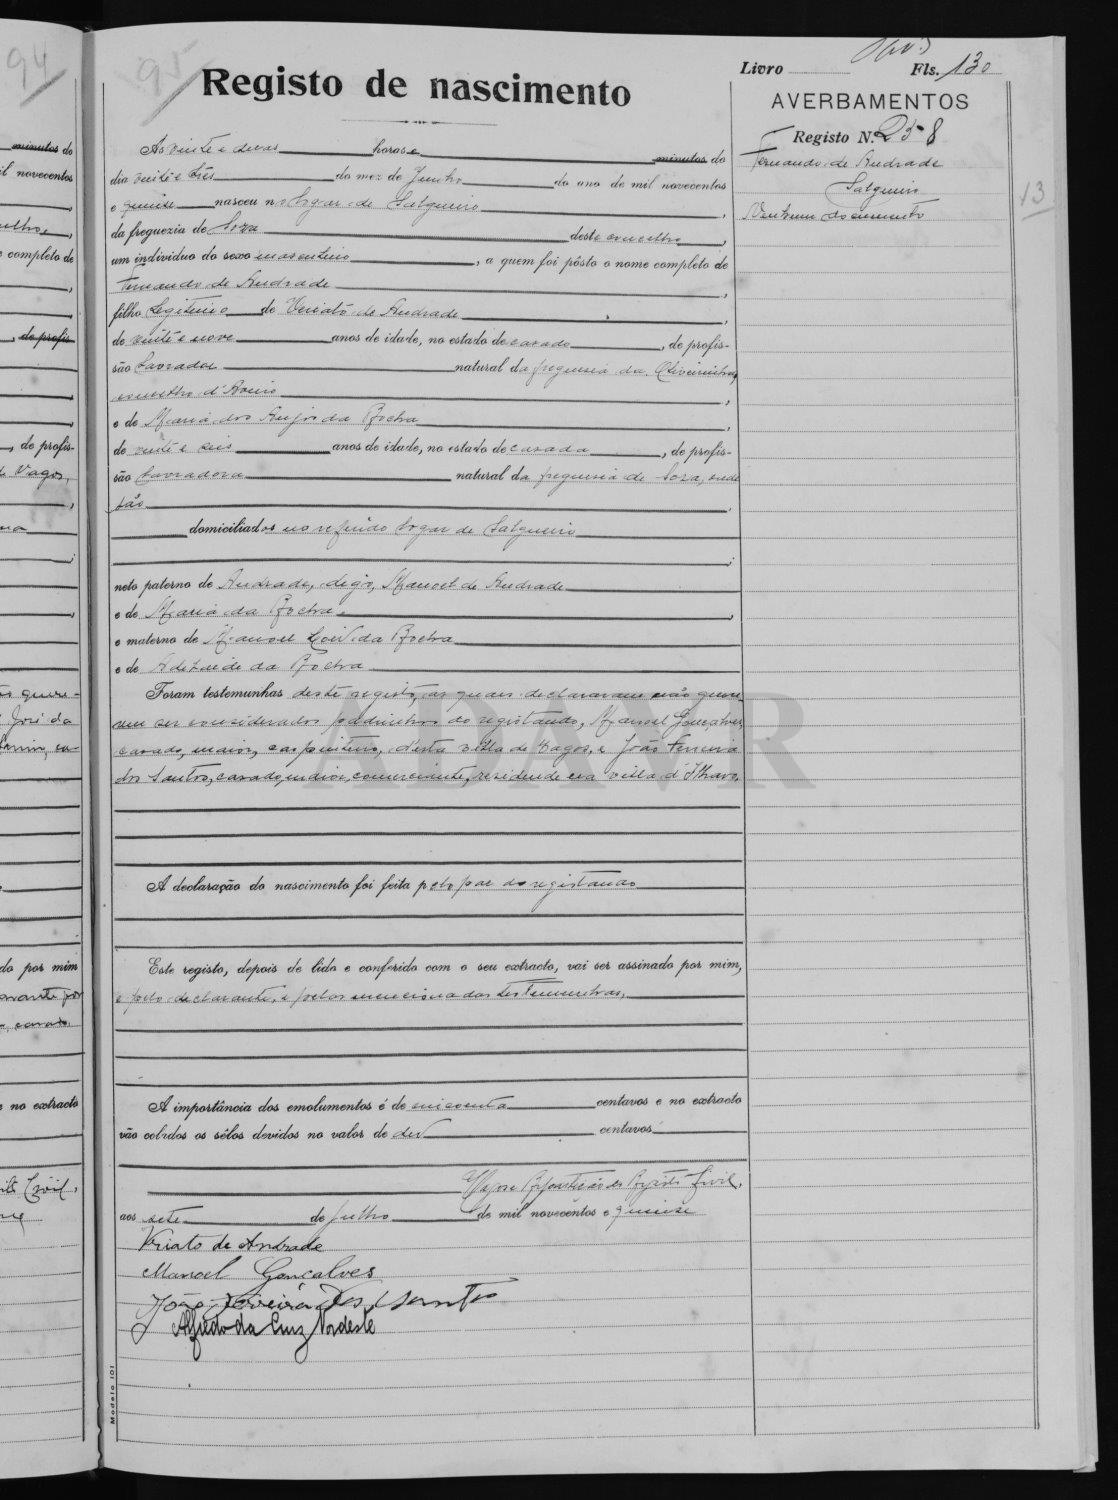 94
minutos do
il novecentos
elho,
e completo de
, de profis-
, de profis-
de Vagos,
no extracto
95
Registo de nascimento
Ás vinte e duas horas e minutos do
dia vinte e três do mez de Junho do ano de mil novecentos
e quinze nasceu no logar de Salgueiro,
da freguezia de Soza deste concelho,
um individuo do sexo masculino, a quem foi pôsto o nome completo de
Fernando de Andrade,
filho legitimo de Viriato de Andrade,
de vinte e nove anos de idade, no estado de casado, de profis-
são Lavrador natural da freguesia da Oliveirinha,
concelho d'Aveiro,
e de Maria dos Anjos da Rocha,
de vinte e seis anos de idade, no estado de casada, de profis-
são Lavradora natural da freguesia de Soza, onde
são,
domiciliados no referido logar de Salgueiro
;
neto paterno de Andrade, digo, Manoel de Andrade
e de Maria da Rocha,
e materno de Manoel da Rocha
e de Adelaide da Rocha
Foram testemunhas deste registo, as quaes declararam não quere-
rem ser considerados padrinhos do registando, Manoel Gonçalves,
casado, maior, carpinteiro, d'esta villa de Vagos, e João Ferreira
dos Santos, casado, maior, comerciante, residente na villa d'Ilhavo.
A declaração do nascimento foi feita pelo pae do registando
Este registo, depois de lido e conferido com o seu extracto, vai ser assinado por mim,
e pelo declarante, e pelas mencionadas testemunhas.
A importância dos emolumentos é de cincoenta centavos e no extracto
vão colados os sêlos devidos no valor de dez centavos.
Vagos e Repartição do Registo Civil,
aos sete de Julho de mil novecentos e quinze
Viriato de Andrade
Manoel Gonçalves
João Ferreira dos Santos
Alfredo da Cruz Nordeste
Modelo 101
Livro Fls. 130
AVERBAMENTOS
Registo N.º 258
Fernando de Andrade
Salgueiro
Nenhum documento
13
ADAVR